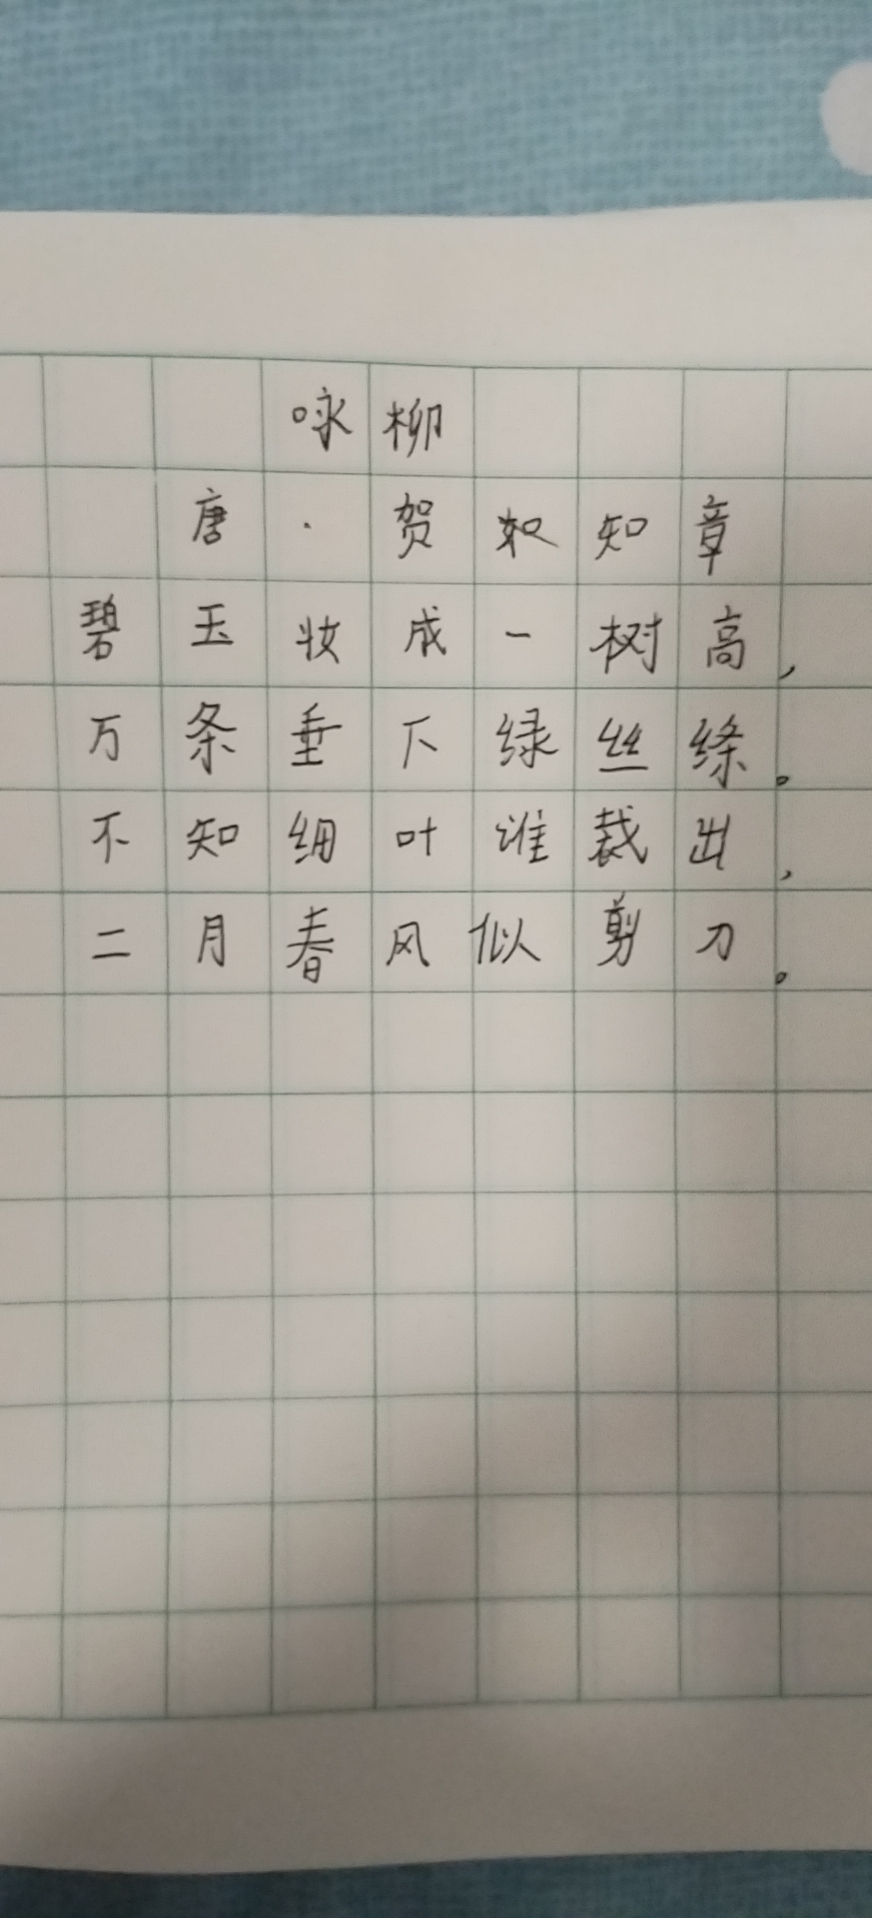 咏柳
唐·贺知章
碧玉妆成一树高,
万条垂下绿丝绦。
不知细叶谁裁出,
二月春风似剪刀。